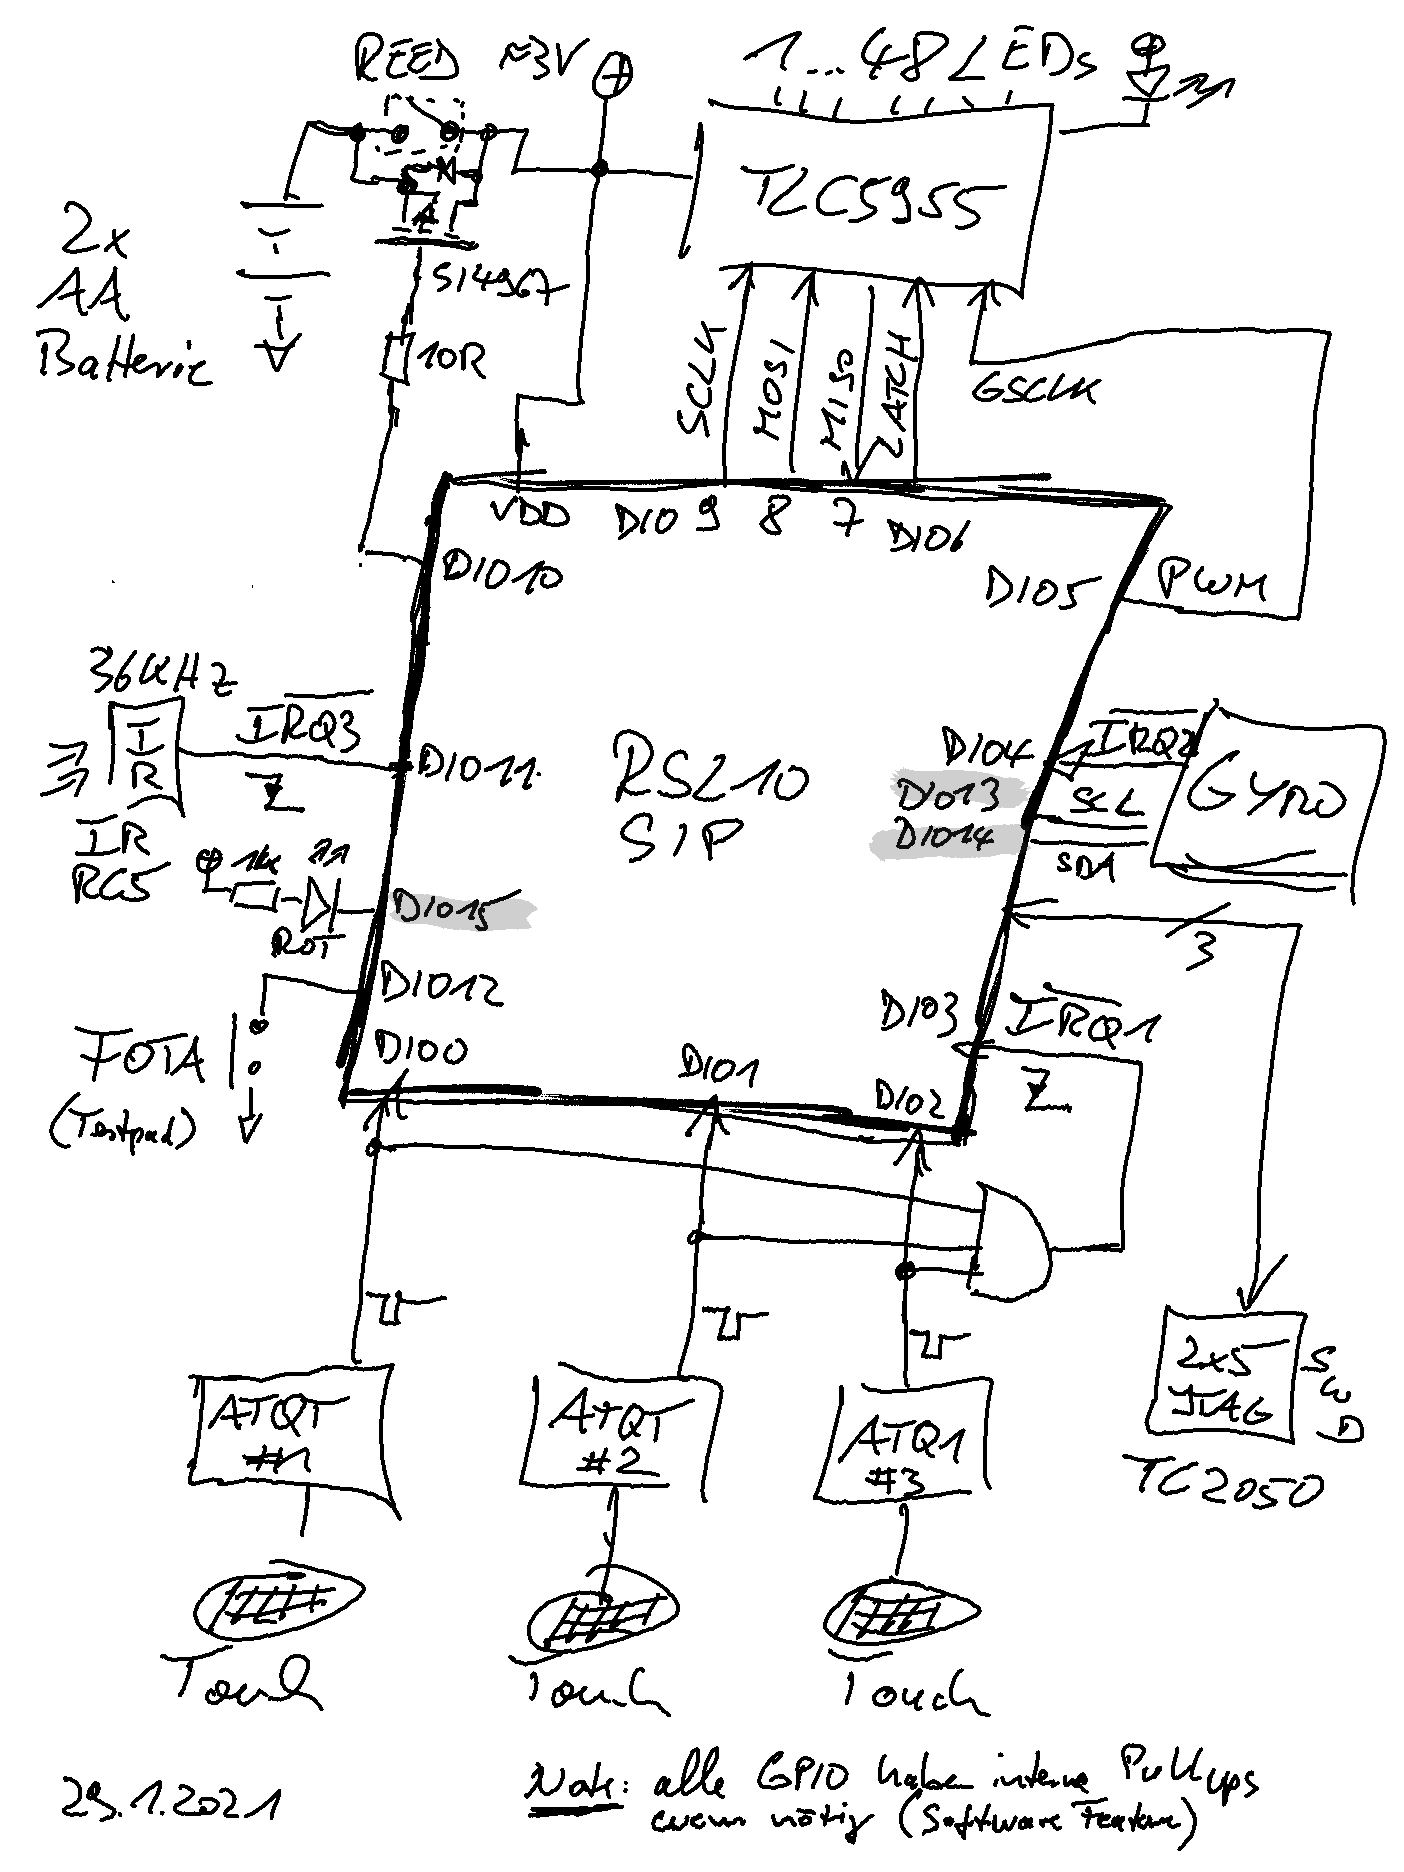 REED ≈3V 1...48 LEDs
TLC5955
2x
AA
Batterie
SI4967
10R
SCLK
MOSI
MISO
LATCH
GSCLK
VDD DIO 9 8 7 DIO6
DIO10
DIO5 PWM
36KHz
IR
IRQ3
Z
DIO11
IR
RC5
RSL10
SIP
DIO4 IRQ2
DIO13 SCL
DIO14 SDA
GYRO
1K
ROT
DIO15
3
DIO12
FOTA
(Testpad)
DIO0
DIO1
DIO2
DIO3 IRQ1
Z
ATQT
#1
ATQT
#2
ATQ1
#3
2x5
JTAG
SWD
TC2050
Touch
Touch
Touch
29.1.2021
Note: alle GPIO haben interne Pullups
wenn nötig (Software Feature)